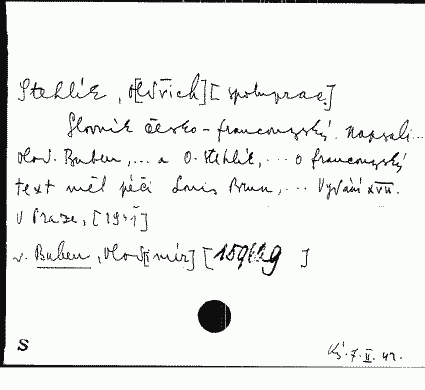 Stehlík, O[ldřich] [spoluprac.]
Slovník česko-francouzský. Napsali...
Vlad. Buben,... a O. Stehlík,... o francouzský
text měl péči Louis Brun,... Vydání XVII.
V Praze,
v. Buben, Vlad[imír]
S
7.II.42.